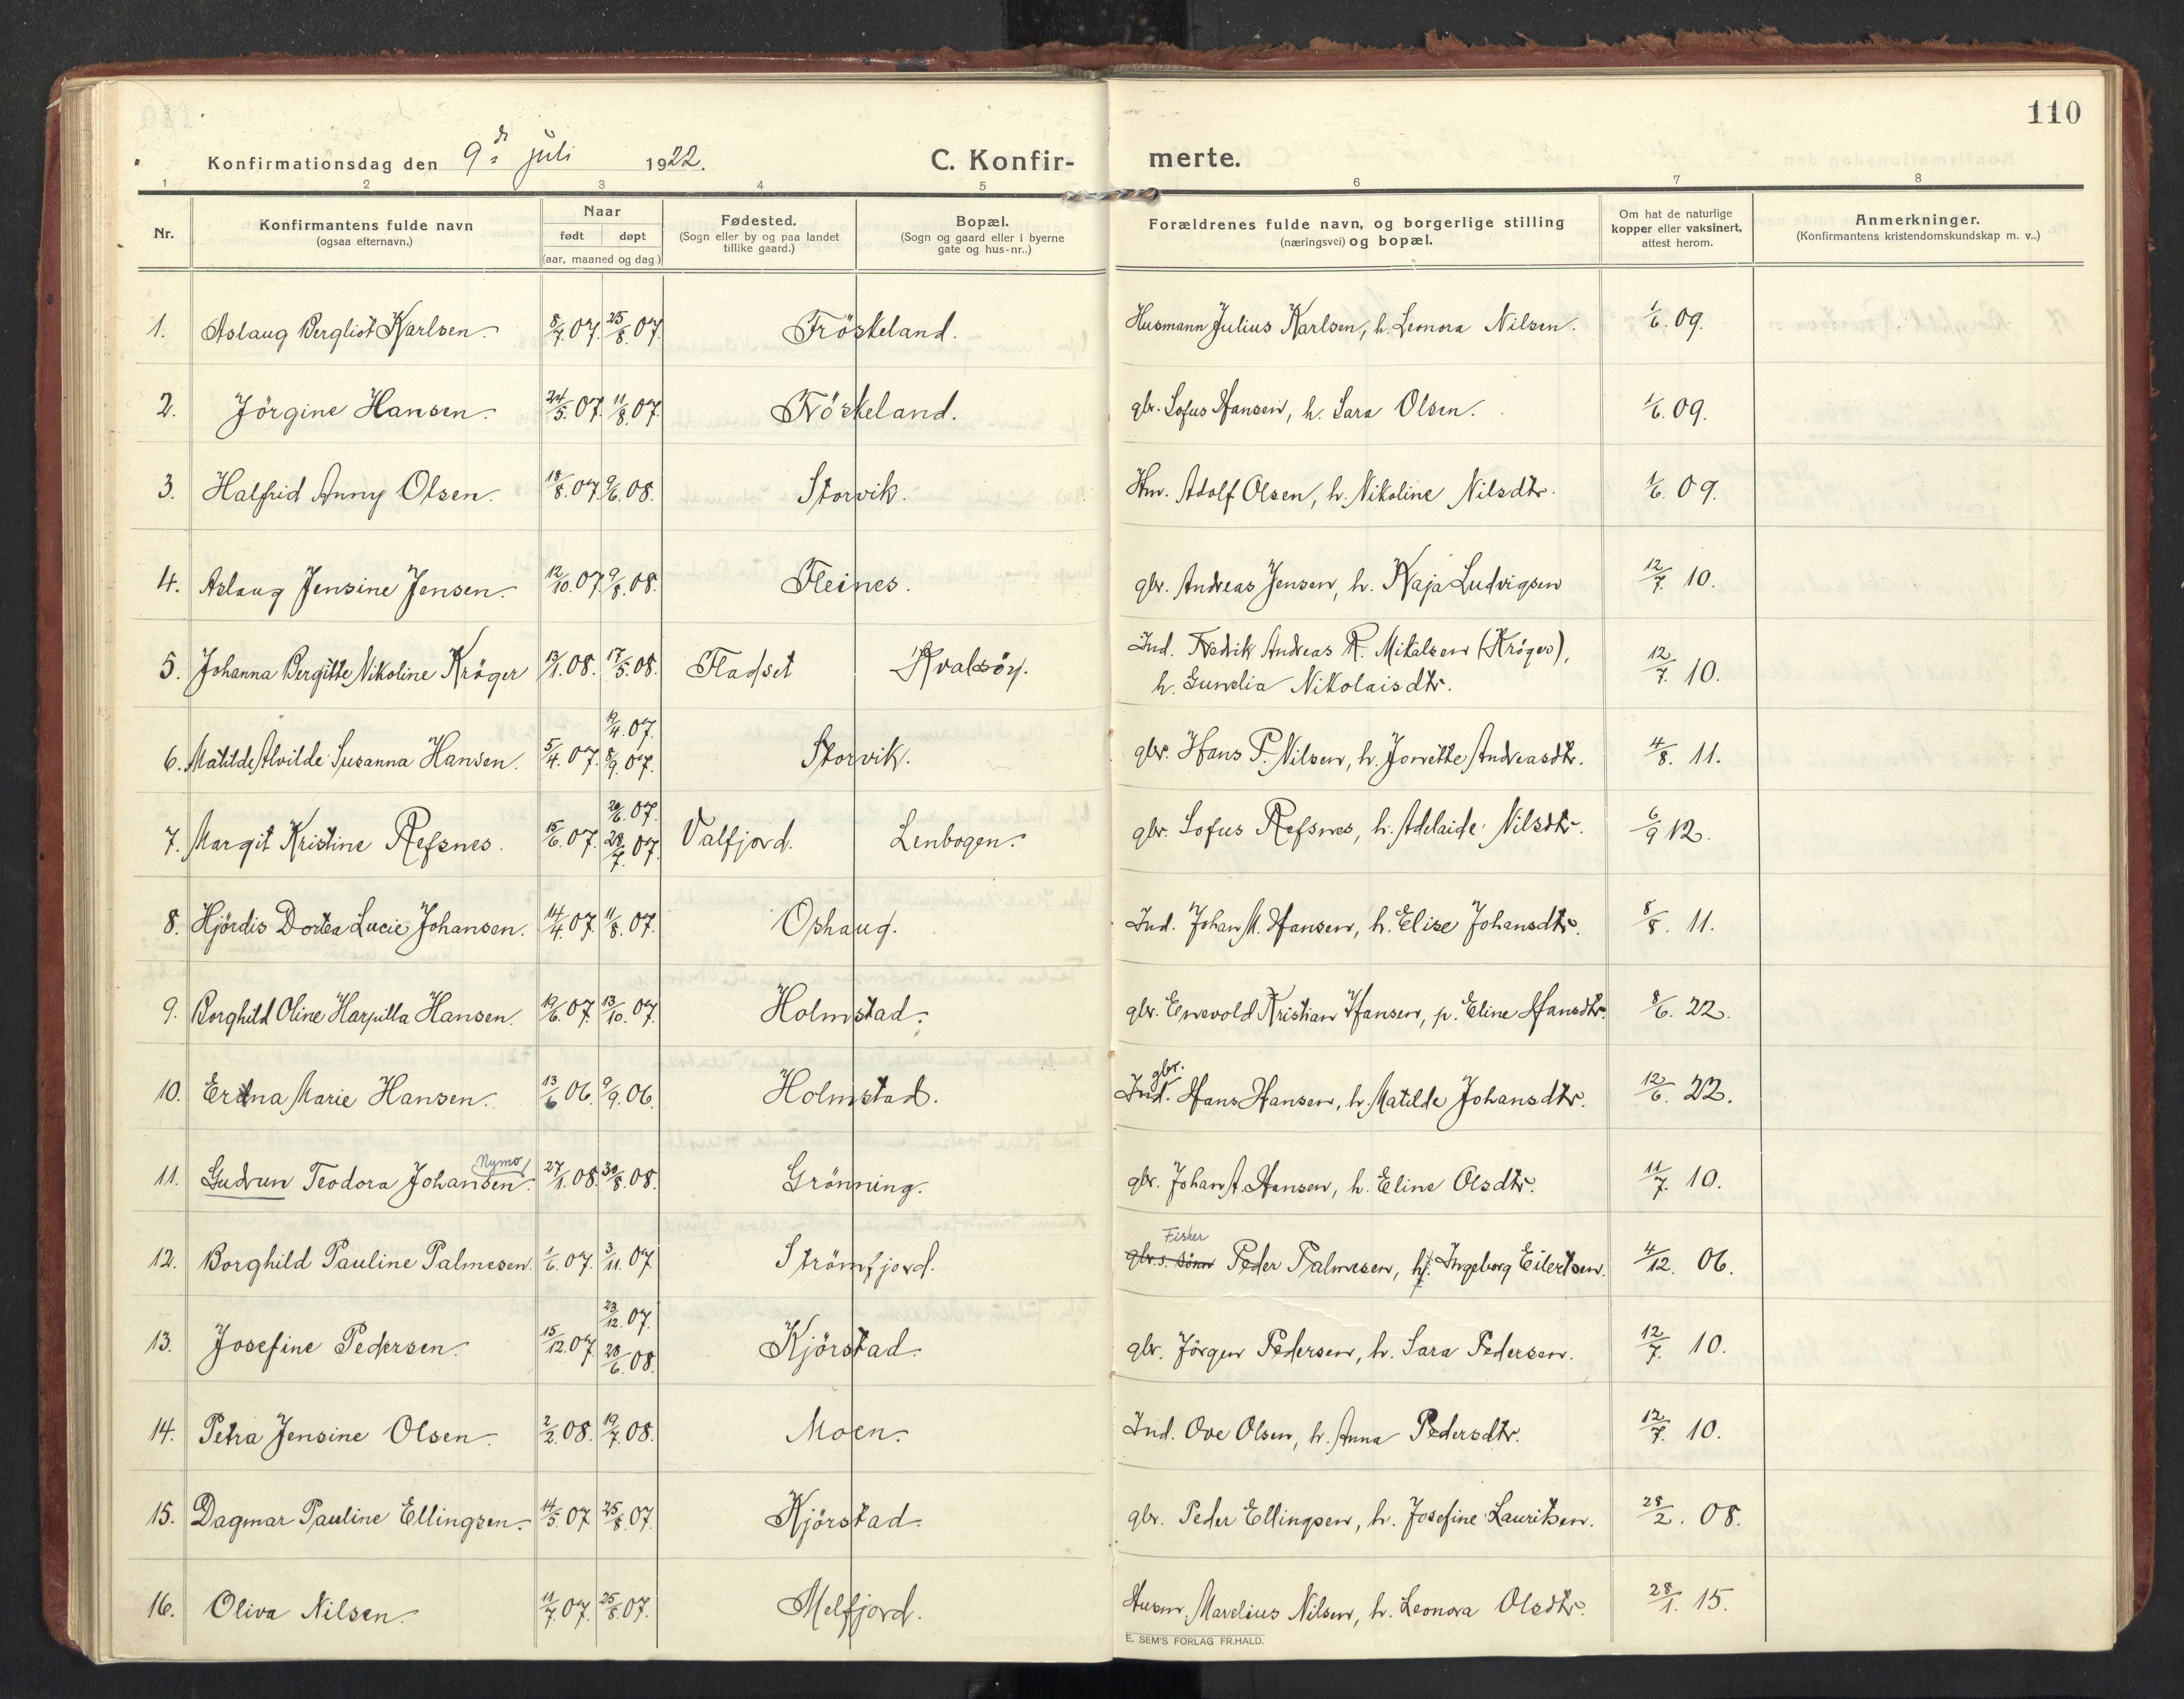 110
Konfirmationsdag den 9de juli 1922. C. Konfir- merte.
1 2 3 4 5 6 7 8
Nr. Konfirmantens fulde navn (ogsaa efternavn.) Naar født døpt (aar, maaned og dag) Fødested. (Sogn eller by og paa landet tillike gaard.) Bopæl. (Sogn og gaard eller i byerne gate og hus-nr..) Forældrenes fulde navn, og borgerlige stilling (næringsvei) og bopæl. Om hat de naturlige kopper eller vaksinert, attest herom. Anmerkninger. (Konfirmantens kristendomskundskap m. v..)
1. Aslaug Bergliot Karlsen. 8/7. 07. 25/8. 07. Fröskeland. Husmann Julius Karlsen, h. Leonora Nilsen. 1/6. 09.
2. Jörgine Hansen. 24/5. 07. 11/8. 07. Fröskeland. gbr. Sofus Hansen, h. Sara Olsen. 1/6. 09.
3. Halfrid Anny Olsen. 18/8. 07. 9/6. 08. Storvik. Hm. Adolf Olsen, h. Nikoline Nilsdtr. 1/6. 09.
4. Aslaug Jensine Jensen. 12/10. 07. 9/8. 08. Fleines. gbr. Andreas Jensen, h. Kaja Ludvigsen 12/7. 10.
5. Johanna Bergitte Nikoline Kröger 13/1. 08. 17/5. 08. Fladset Kvalsöy. Ind. Fredrik Andreas R. Mikalsen (Kröger),
h. Gunelia Nikolaisdtr. 12/7. 10.
19/4. 07.
6. Matilde Alvilde Susanna Hansen. 5/4. 07. 8/9. 07. Storvik. gbr. Hans P. Nilsen, h. Jonette Andreasdtr. 4/8. 11.
20/6. 07.
7. Margit Kristine Refsnes. 15/6. 07. 28/7. 07. Valfjord. Lenbogen. gbr. Sofus Refsnes, h. Adelaide Nilsdtr. 6/9 12.
8. Hjördis Dortea Lucie Johansen. 14/4. 07. 11/8. 07. Oshaug. Ind. Johan M. Hansen, h. Elise Johansdtr. 8/8. 11.
9. Borghild Oline Harpilla Hansen. 19/6. 07. 13/10. 07. Holmstad. gbr. Enevold Kristian Hansen, p. Eline Hansdtr. 8/6. 22.
gbr.
10. Erna Marie Hansen. 13/6 06. 9/9. 06. Holmstad. Ind. Hans Hansen, h. Matilde Johansdtr. 12/6. 22.
Nymo
11. Gudrun Teodora Johansen. 27/1. 08. 30/8. 08. Grönning. gbr. Johan A. Hansen, h. Eline Olsdtr. 11/7. 10.
Fisker
12. Borghild Pauline Palmesen. 1/6. 07. 3/11. 07. Strömfjord. gbr.s. sönn Peder Palmesen, h. Ingeborg Eilertsen. 4/12. 06.
23/12. 07.
13. Josefine Pedersen. 15/12. 07. 28/6. 08. Kjörstad. gbr. Jörgen Pedersen, h. Sara Pedersen. 12/7. 10.
14. Petra Jensine Olsen. 2/2. 08. 19/7. 08. Moen. Ind. Ove Olsen, h. Anna Pedersdtr. 12/7. 10.
15. Dagmar Pauline Ellingsen. 14/5. 07. 25/8. 07. Kjörstad. gbr. Peder Ellingsen, h. Josefine Lauritsen. 28/2. 08.
16. Oliva Nilsen. 11/7. 07. 25/8. 07. Melfjord. Husm. Marelius Nilsen, h. Leonora Olsdtr. 28/1. 15.
E. SEM'S FORLAG FR.HALD.